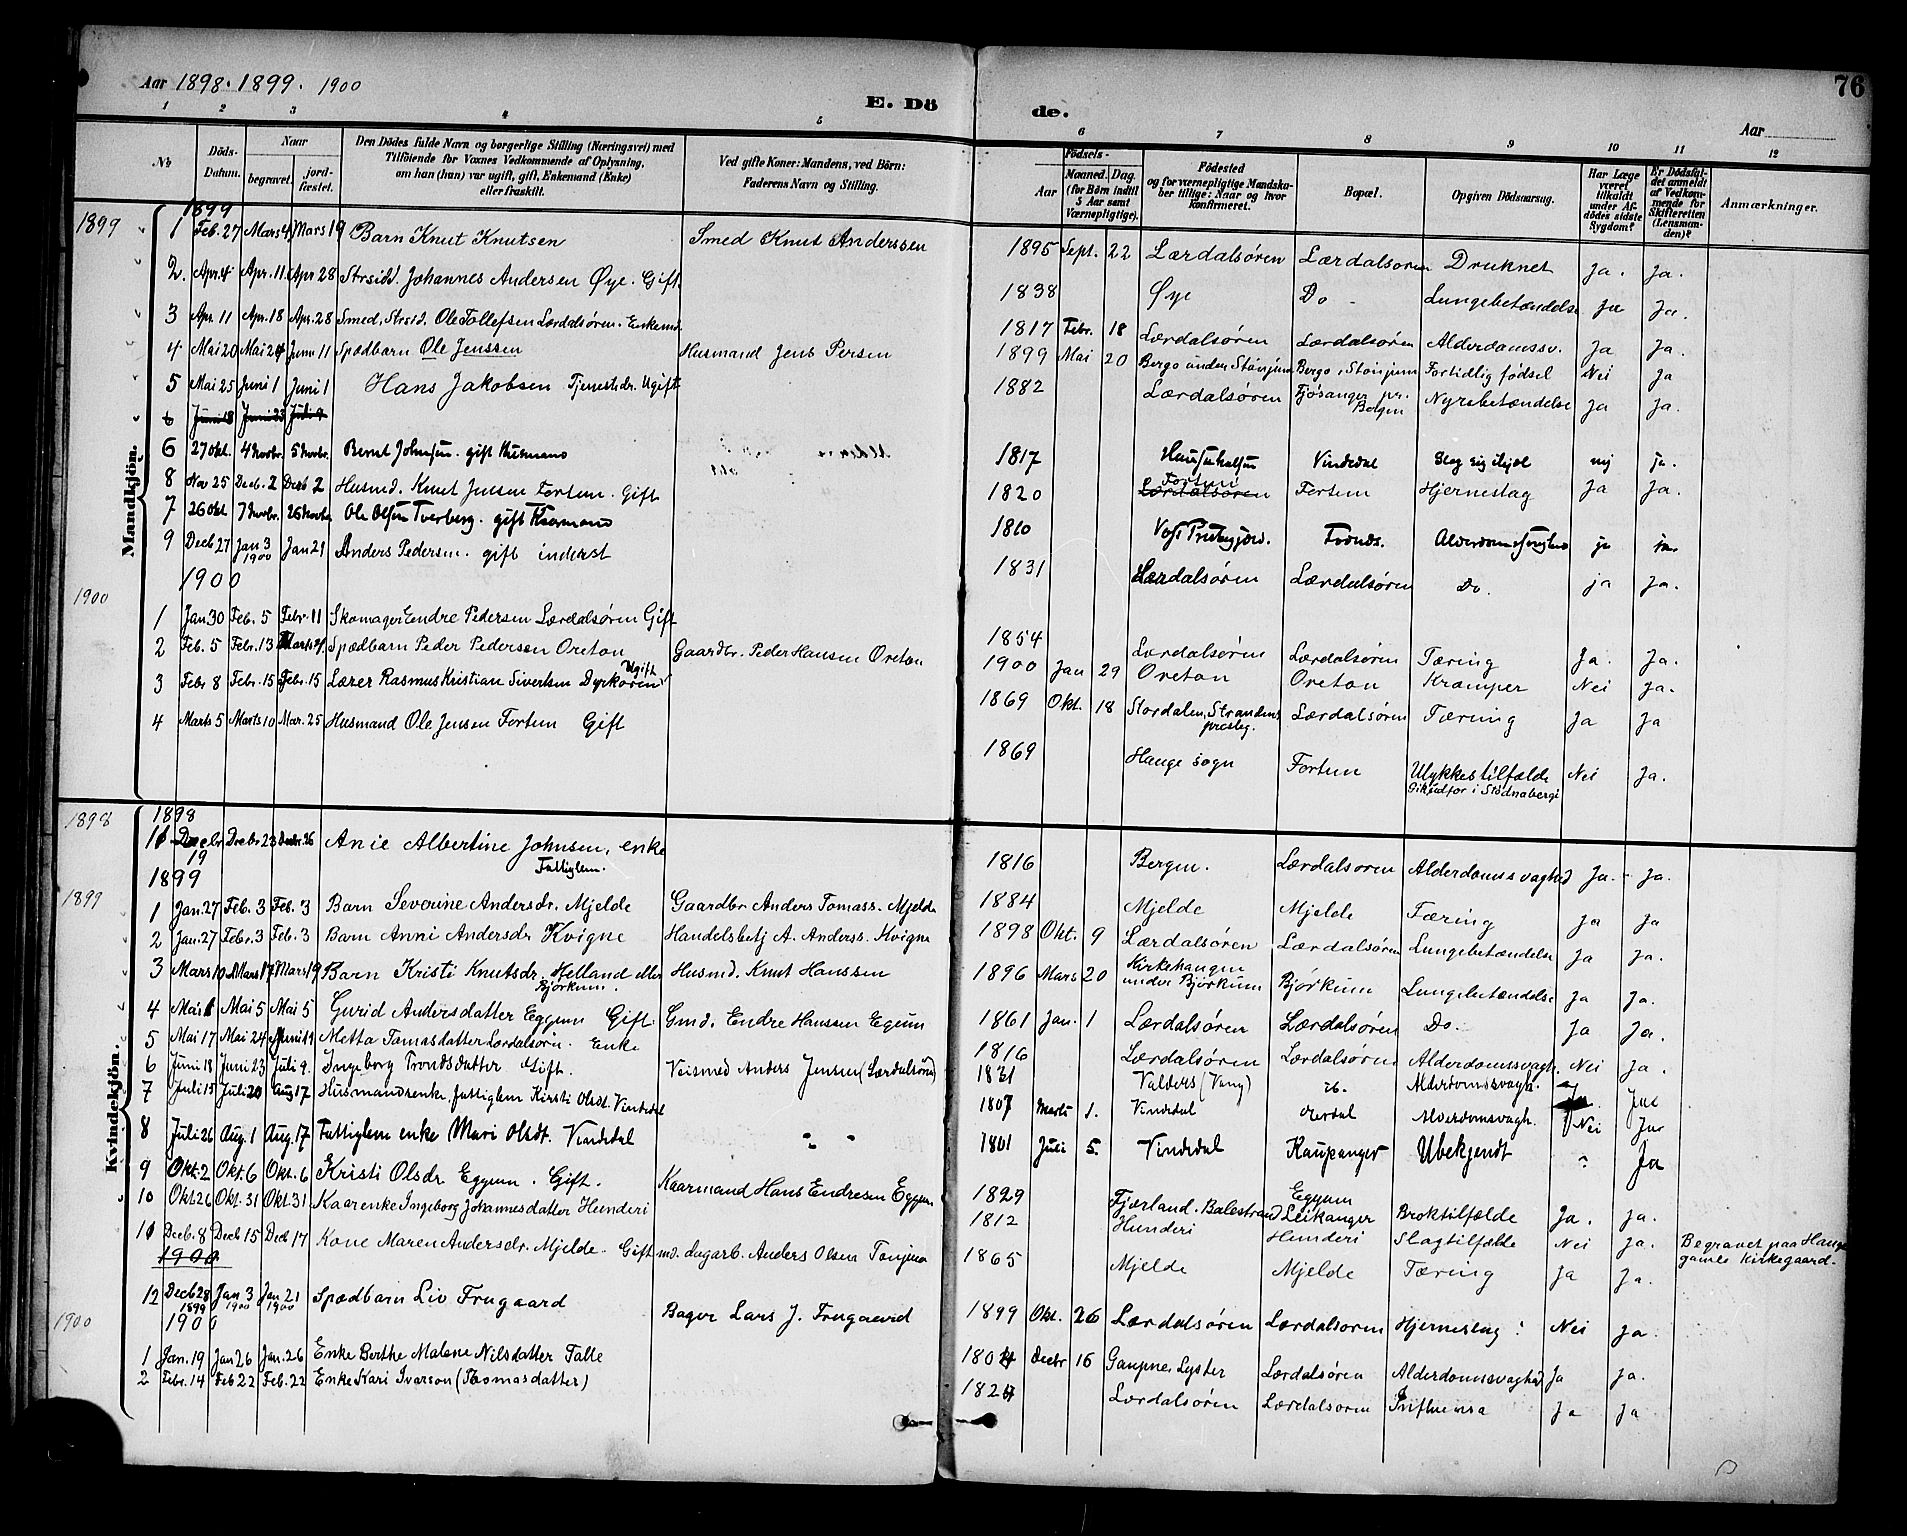 Aar 1898. 1899. 1900
E. Dö de.
76
Aar
1 2 3 4 5 6 7 8 9 10 11 12
No
Döds-Datum.
Naar
begravet.
jordfæstet.
Den Dödes fulde Navn og borgerlige Stilling (Næringsvei) med
Tilföiende for Voxnes Vedkommende af Oplysning,
om han (hun) var ugift, gift, Enkemand (Enke)
eller fraskilt.
Ved gifte Koner: Mandens, ved Börn:
Faderens Navn og Stilling.
Födsels-
Aar
Maaned. Dag.
(for Börn indtil
5 Aar samt
Værnepligtige).
Födested
og for værnepligtige Mandska-
ber tillige: Naar og hvor
konfirmeret.
Bopæl.
Opgiven Dödsaarsag.
Har Læge
været
tilkaldt
under Af-
dödes sidste
Sygdom?
Er Dödsfal-
det anmeldt
af Vedkom-
mende for
Skifteretten
(Lensman-
den)?
Anmærkninger.
Mandkjön.
1899
1899
1 Feb. 27 Mars 4 Mars 19 Barn Knut Knutsen Smed Knut Anderssen 1895 Sept. 22 Lærdalsören Lærdalsoren Druknet Ja. Ja.
2. Apr. 4 Apr. 11 Apr 28 Strsid. Johannes Andersen Øye. Gift. 1838 Øye Do Lungebetændelse Ja Ja.
3 Apr. 11 Apr. 18 Apr. 28 Smed, Strsid. Ole Tollefsen Lærdalsören. Enkemd. 1817 Febr. 18 Lærdalsören Lærdalsören Alderdomssv. Ja Ja.
4 Mai 20 Mai 24 Juni 11 Spædbarn Ole Jenssen Husmand Jens Persen 1899 Mai 20 Bergo under Stönjum Bergo, Stönjum Fortidlig fødsel Nei Ja
5 Mai 25 Juni 1 Juni 1 Hans Jakobsen Tjenestdr. Ugift 1882 Lærdalsören Fjösanger pr. Bergen Nyrebetændelse Ja Ja.
6 Juni 18 Juni 23 Juli 9
6 27 Okt. 4 Novbr. 5 Novbr. Bernt Johnsen. gift Husmand 1817 Vindedal Slog sig ihjel nej ja.
8 Nov 25 Decb. 2 Decb 2 Husmd. Knut Jensen Fortun. Gift 1820 Fortun Lærdalsören Fortun Hjerneslag Ja Ja.
7 26 Okt 7 Novbr. 26 Novbr. Ole Olsen Tverberg. gift Kaarmand 1810 ja ja.
9 Decb 27 Jan 3 1900 Jan 21 Anders Pedersen. gift inderst 1831 Lærdalsören Lærdalsören Do. ja Ja.
1900
1900
1 Jan 30 Feb. 5 Febr. 11 Skomager Endre Pedersen Lærdalsören Gift 1854 Lærdalsören Lærdalsören Tæring Ja. Ja.
2 Feb. 5 Febr. 13 Marts 4. Spædbarn Peder Pedersen Oreton Gaardbr. Peder Hansen Oreton 1900 Jan 29 Oreton Oreton Kramper Nei Ja.
3 Febr 8 Febr. 15 Febr. 15 Lærer Rasmus Kristian Sivertsen Dyrkoren Ugift 1869 Okt. 18 Stordalen, Strandens presteg. Lærdalsören Tæring Ja Ja
4 Marts 5 Marts 10 Mar. 25 Husmand Ole Jensen Fortun Gift 1869 Hauge sogn Fortun Ulykkestilfælde Gik udfor i Stödnabergi Nei Ja.
Kvindekjön.
1898
1898
11 Decbr 19 Decbr 23 Decbr 26 Anie Albertine Johnsen, enke Fattiglem. 1816 Bergen. Lærdalsoren Alderdomssvaghed Ja. Ja.
1899
1899
1 Jan. 27 Feb. 3 Feb. 3 Barn Severine Andersdr. Mjelde Gaardbr Anders Tomass. Mjelde 1884 Mjelde Mjelde Tæring Ja Ja
2 Jan. 27 Febr. 3 Feb. 3 Barn Anni Andersdr Kvigne Handelsbetj A. Anderss. Kvigne 1898 Okt. 9 Lærdalsören Lærdalsören Lungebetændelse Ja Ja.
3 Mars 10 Mars 17 Mars 19 Barn Kristi Knutsdr. Helland eller Björkum. Husmd. Knut Hanssen 1896 Mars 20 Kirkehaugen under Björkum Björkum Lungebetændelse Ja Ja.
4 Mai 1 Mai 5 Mai 5 Gurid Andersdatter Eggum Gift. Gmd. Endre Hanssen Egum 1861 Jan. 1 Lærdalsören Lærdalsören Do. Ja Ja.
5 Mai 17 Mai 24 Juni 11 Metta Tomasdatter Lærdalsörn. Enke 1816 Lærdalsören Lærdalsörn Alderdomssvagh. Nei Ja.
6 Juni 18 Juni 23 Juli 9. Ingeborg Trondsdatter Gift. Veismed Anders Jensen (Lærdalsören) 1831 Valders (Vang) Alderdomssvagh.
7 Juli 15 Juli 20 Aug 17 Husmandsenke, fattiglem Kirsti Olsdt. Vindedal 1807 Marts 1. Vindedal Alderdomssvagh. Nei Ja
8 Juli 26 Aug. 1 Aug. 17 Fattiglem enke Mari Olsdt. Vindedal 1801 Juli 5. Vindedal Kaupanger Ubekjendt Ja
9 Okt. 2 Okt. 6 Okt. 6 Kristi Olsdr Eggum. Gift. Kaarmand Hans Endresen Eggum 1829 Fjærland. Balestrand Eggum Leikanger Broktilfælde Ja. Ja.
10 Okt 26 Okt. 31 Okt 31 Kaarenke Ingeborg Johannesdatter Hunderi 1812 Hunderi Hunderi Slagtilfælde Nei Ja. Begravet paa Hauge gamle Kirkegaard.
11 Decb. 8 Decb 15 Decb 17 Kone Maren Andersdr. Mjelde. Gift md. dagarb. Anders Olsen Tonjum 1865 Mjelde Mjelde Tæring Ja Ja.
1900
12 Decb 28 1899 Jan 3 1900 Jan 21 1900 Spædbarn Liv Frugaard Bager Lars J. Frugaard 1899 Okt. 26 Lærdalsören Lærdalsoren Hjerneslag Nei Ja.
1900
1900
1 Jan. 19 Jan 26 Jan. 26 Enke Berthe Malene Nilsdatter Talle 1804 Decbr 16 Gaupne, Lyster Lærdalsören Alderdomssvaghed Ja Ja.
2 Febr. 14 Feb 22 Feb. 22 Enke Kari Ivarson (Thomasdatter) 1824 Lærdalsören Lærdalsoren Influensa Ja Ja